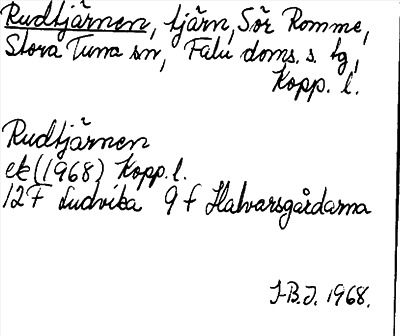 Rudtjärnen, tjärn, Sör Romme,
Stora Tuna sn, Falu doms. s. tg,
Kopp. l.
Rudtjärnen
ek (1968) Kopp. l.
12 F Ludvika 9 f Halvarsgårdarna
I-B.J. 1968.